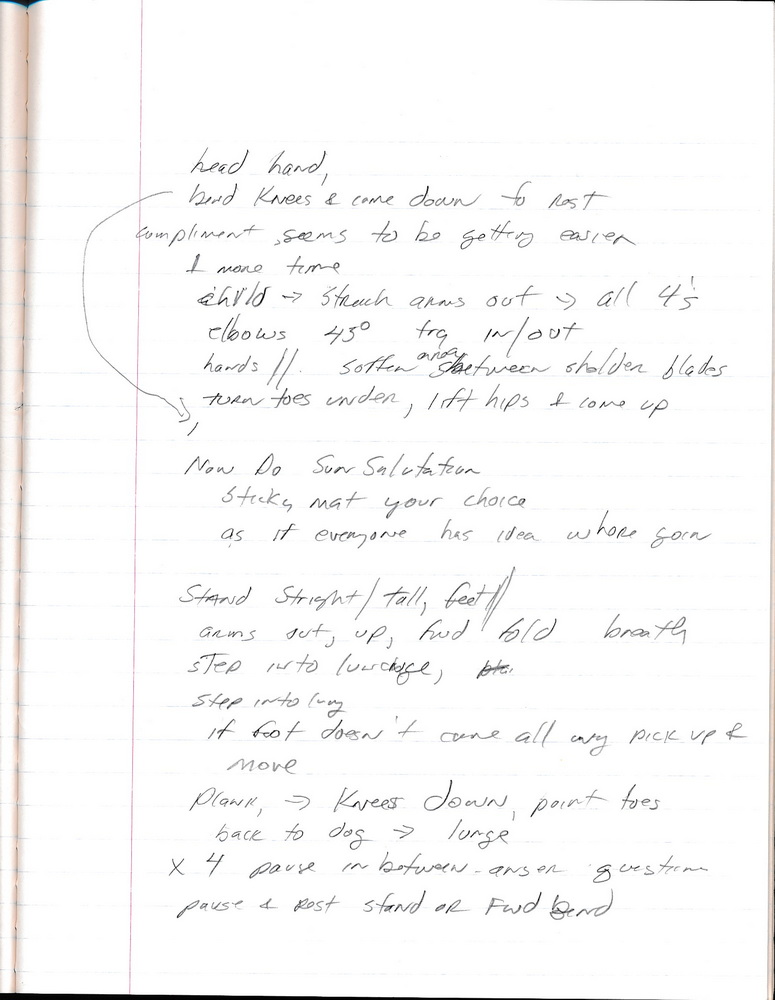 head hand,
bend Knees & come down to rest
compliment, seems to be getting easier
1 more time
child → Strech arms out → all 4's
elbows 45° trq in/out
hands //. soften between sholder blades
turn toes under, lift hips & come up
Now Do Sun Salutation
Sticky mat your choice
as if everyone has idea where goin
Stand Stright/tall, feet //
arms out, up, fwd fold breath
step into lunge,
step into lung
if foot doesn't come all way pick up &
move
Plank, → Knees down, point toes
back to dog → lunge
x 4 pause in between - anser question
pause & rest stand or Fwd Bend